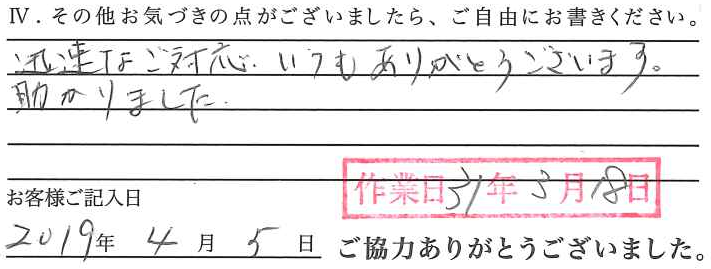 Ⅳ．その他お気づきの点がございましたら、ご自由にお書きください。
迅速なご対応、いつもありがとうございます。
助かりました。
お客様ご記入日
作業日31年3月18日
2019年 4月 5日
ご協力ありがとうございました。